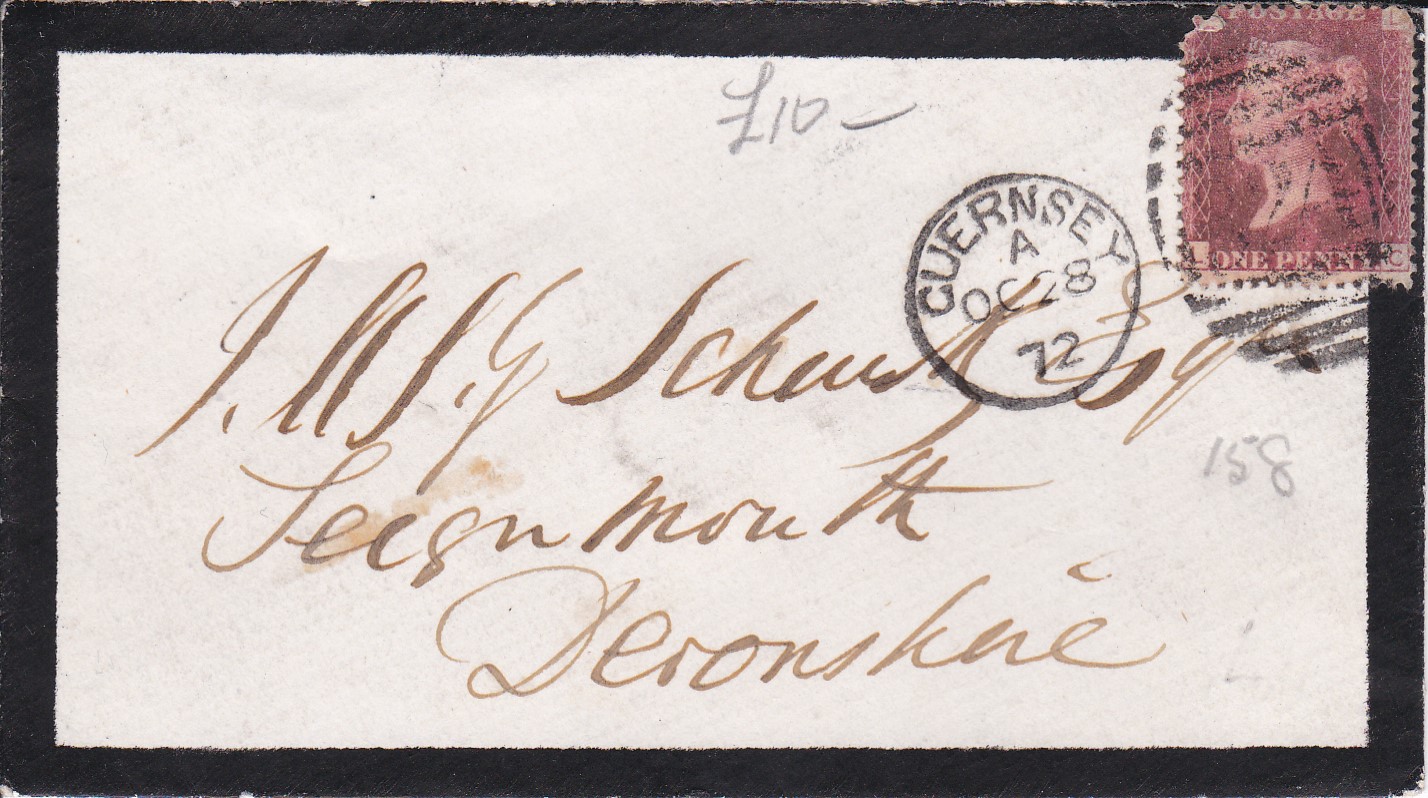 POSTAGE
£10–
GUERNSEY
A
OC 28
72
ONE PENNY
C
J. Esq
Teignmouth
158
Devonshire